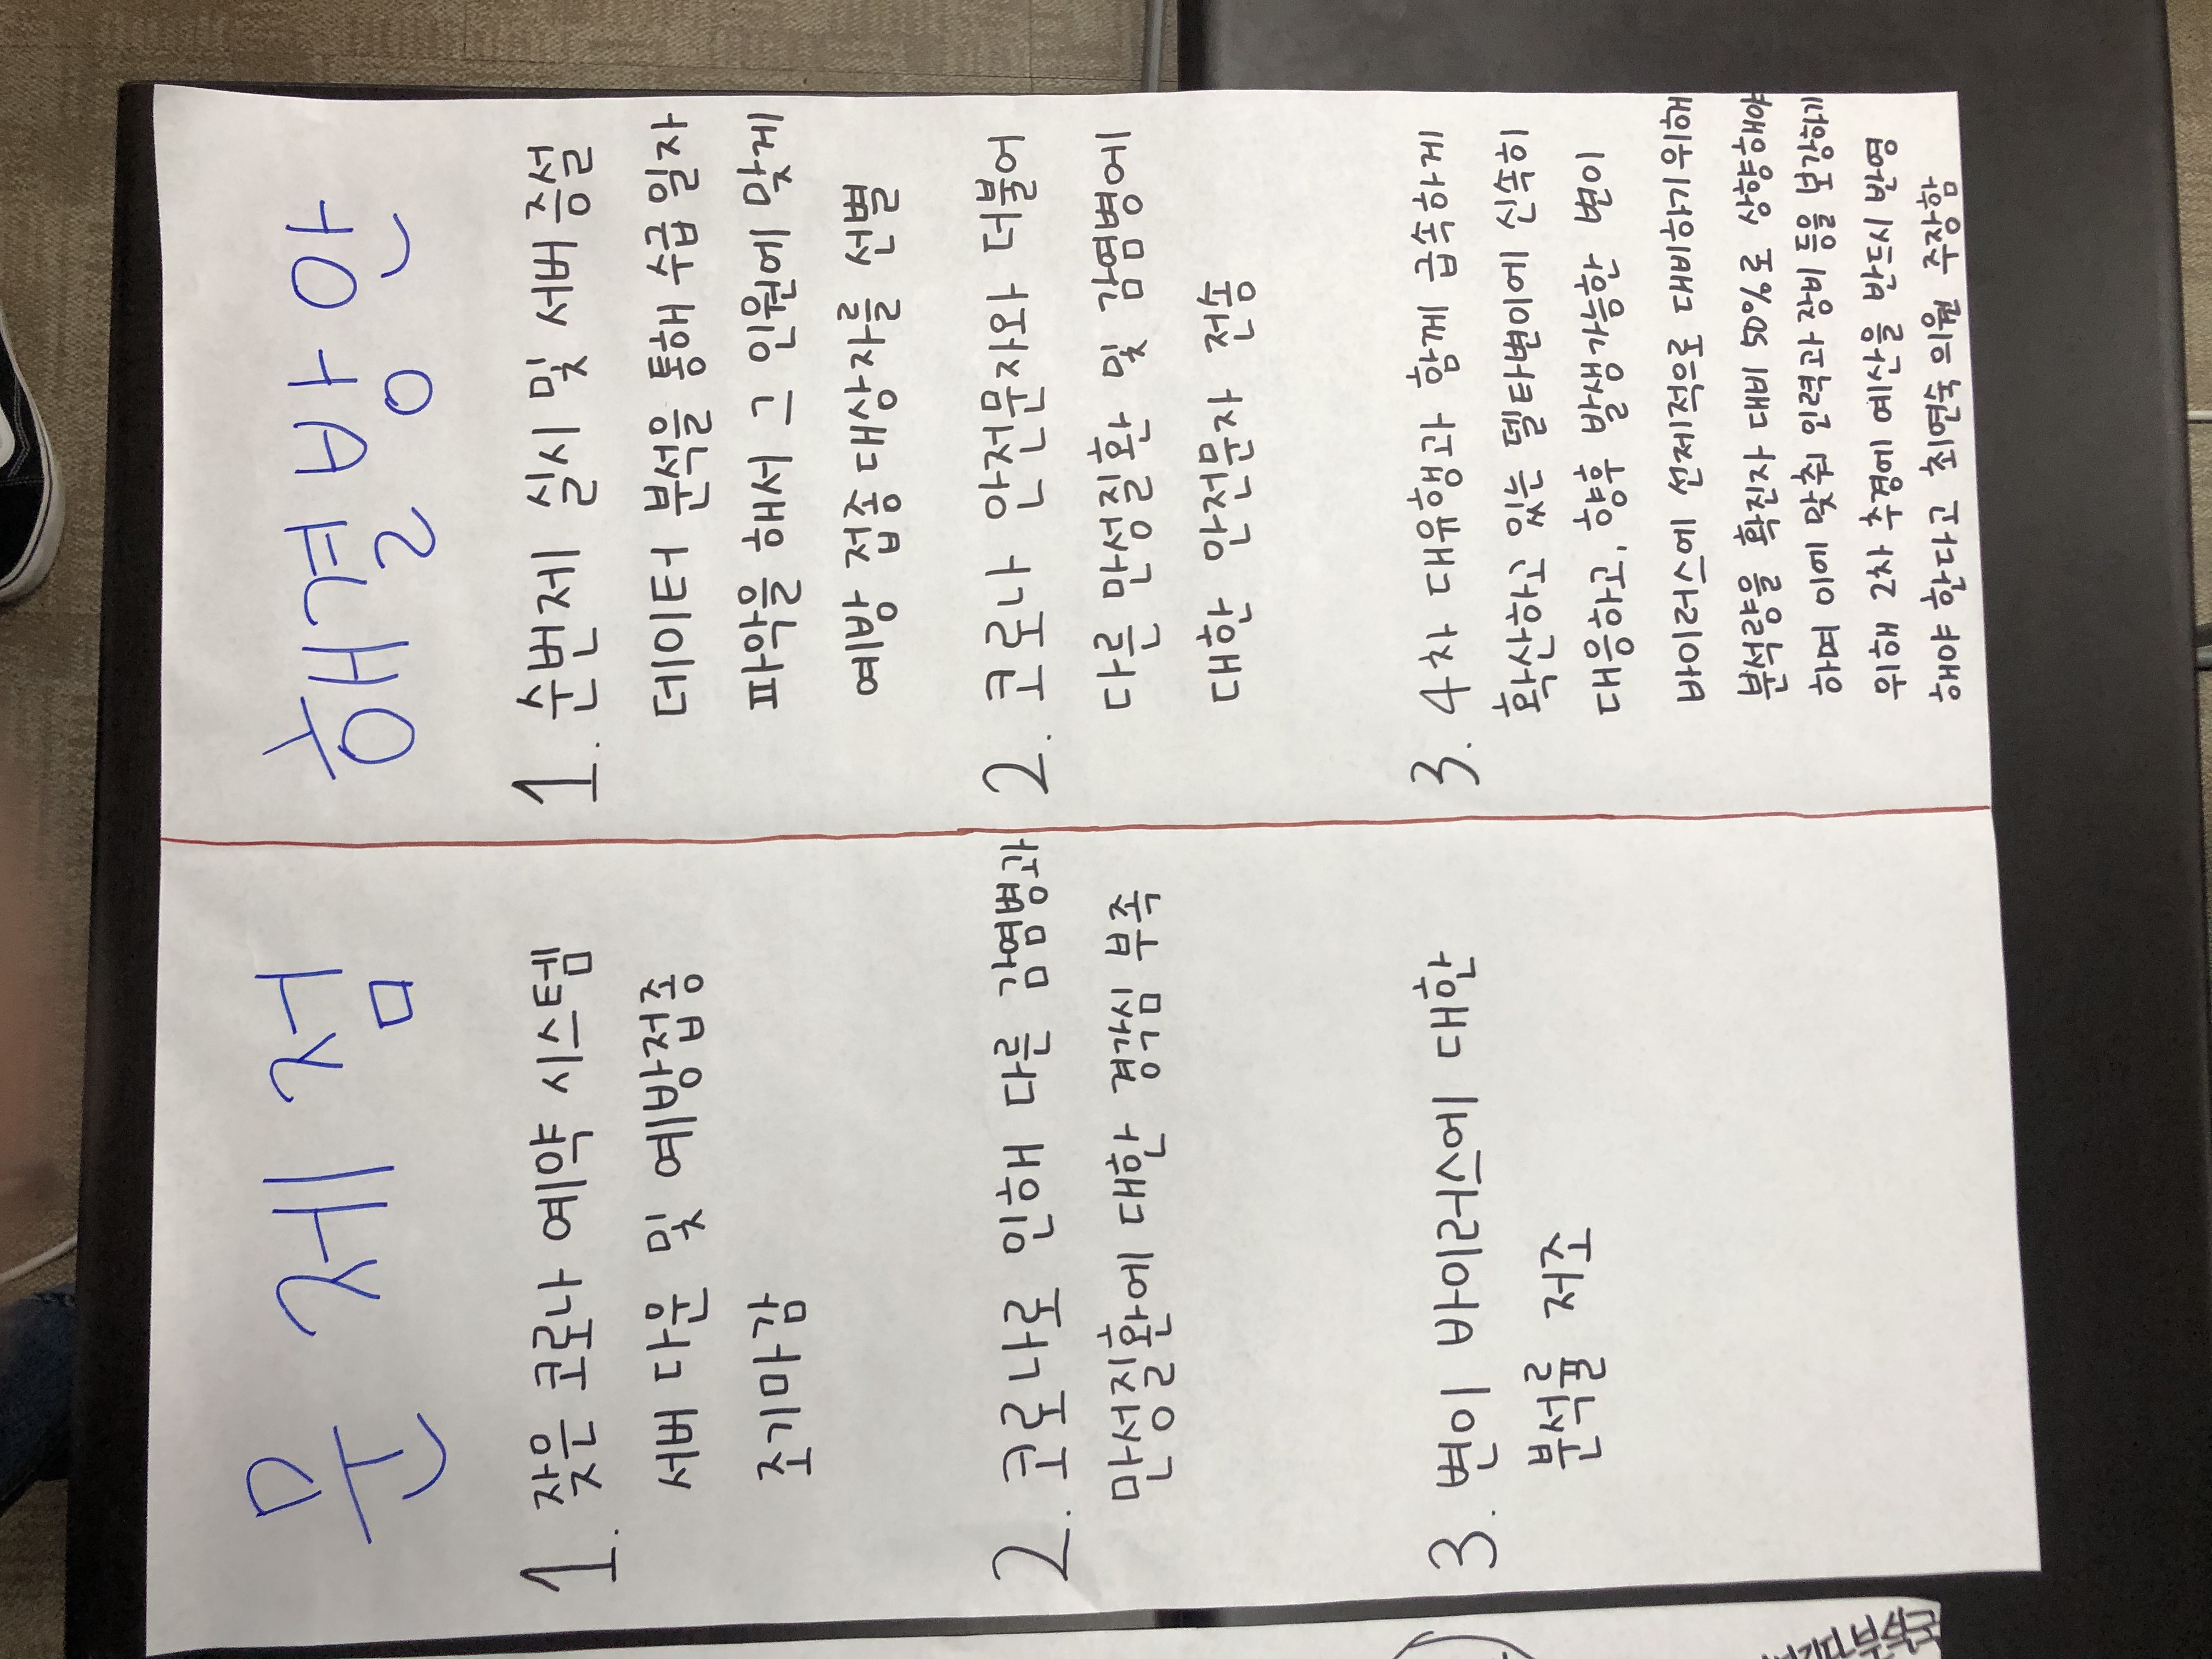 문제점
1. 잦은 코로나 예약 시스템
서버 다운 및 예방접종
조기마감
2. 코로나로 인해 다른 감염병과
만성질환에 대한 경각심 부족
3. 변이 바이러스에 대한
분석률 저조
해결방안
1. 순번제 실시 및 서버 증설
데이터 분석을 통해 수급 일자
파악을 해서 그 인원에 맞게
예방 접종 대상자를 선별
2. 코로나 안전문자와 더불어
다른 만성질환 및 감염병에
대한 안전문자 전송
3. 4차 대유행과 함께 급속하게
확산하고 있는 델타변이에 신속히
대응하고, 향후 발생가능한 변이
바이러스에 선제적으로 대비하기 위해
분석량을 확진자 대비 50%로 상향해야
하며 이에 맞춰 인력과 장비 등을 보강하기
위해 2차 추경에 예산을 반드시 반영
해야 한다고 최연숙 의원 주장함